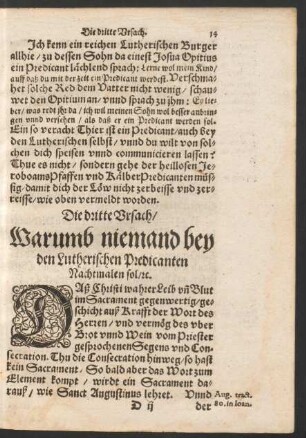 Die dritte Vrsach. 14
Ich kenn ein reichen Lutherischen Burger
allhie / zu dessen Sohn da einest Josua Opitius
ein Predicant låchlend sprach: Lerne wol mein Kind /
auff daß du mit der zeit ein Predicant werdest. Verschma-
het solche Red dem Vatter nicht wenig / schau-
wet den Opitium an / vnnd sprach zu jhm: Ey lie-
ber / was redt jhr da / ich wil meinen Sohn wol besser anbrin-
gen vnnd versehen / als daß er ein Predicant werden sol.
Ein so veracht Thier ist ein Predicant / auch bey
den Lutherischen selbst / vnnd du wilt von sol-
chen dich speisen vnnd communicieren lassen?
Thue es nicht / sondern gehe der heillosen Je-
roboams Pfaffen vnd Kålber Predicanten müs-
sig: damit dich der Löw nicht zerbeisse vnd zer-
reisse / wie oben vermeldt worden.
Die dritte Vrsach /
Warumb niemand bey
den Lutherischen Predicanten
Nachtmalen sol / rc.
DAß Christi wahrer Leib vñ Blut
im Sacrament gegenwertig / ge-
schicht auß Krafft der Wort des
Herren / vnd vermög des vber
Brot vnnd Wein vom Priester
gesprochenen Segens vnd Con-
secration. Thu die Consecration hinweg / so hast
kein Sacrament. So bald aber das Wort zum
Element kompt / wirdt ein Sacrament da-
rauß / wie Sanct Augustinus lehret. Vnnd
Aug. tract.
80. in Ioan.
D ij der